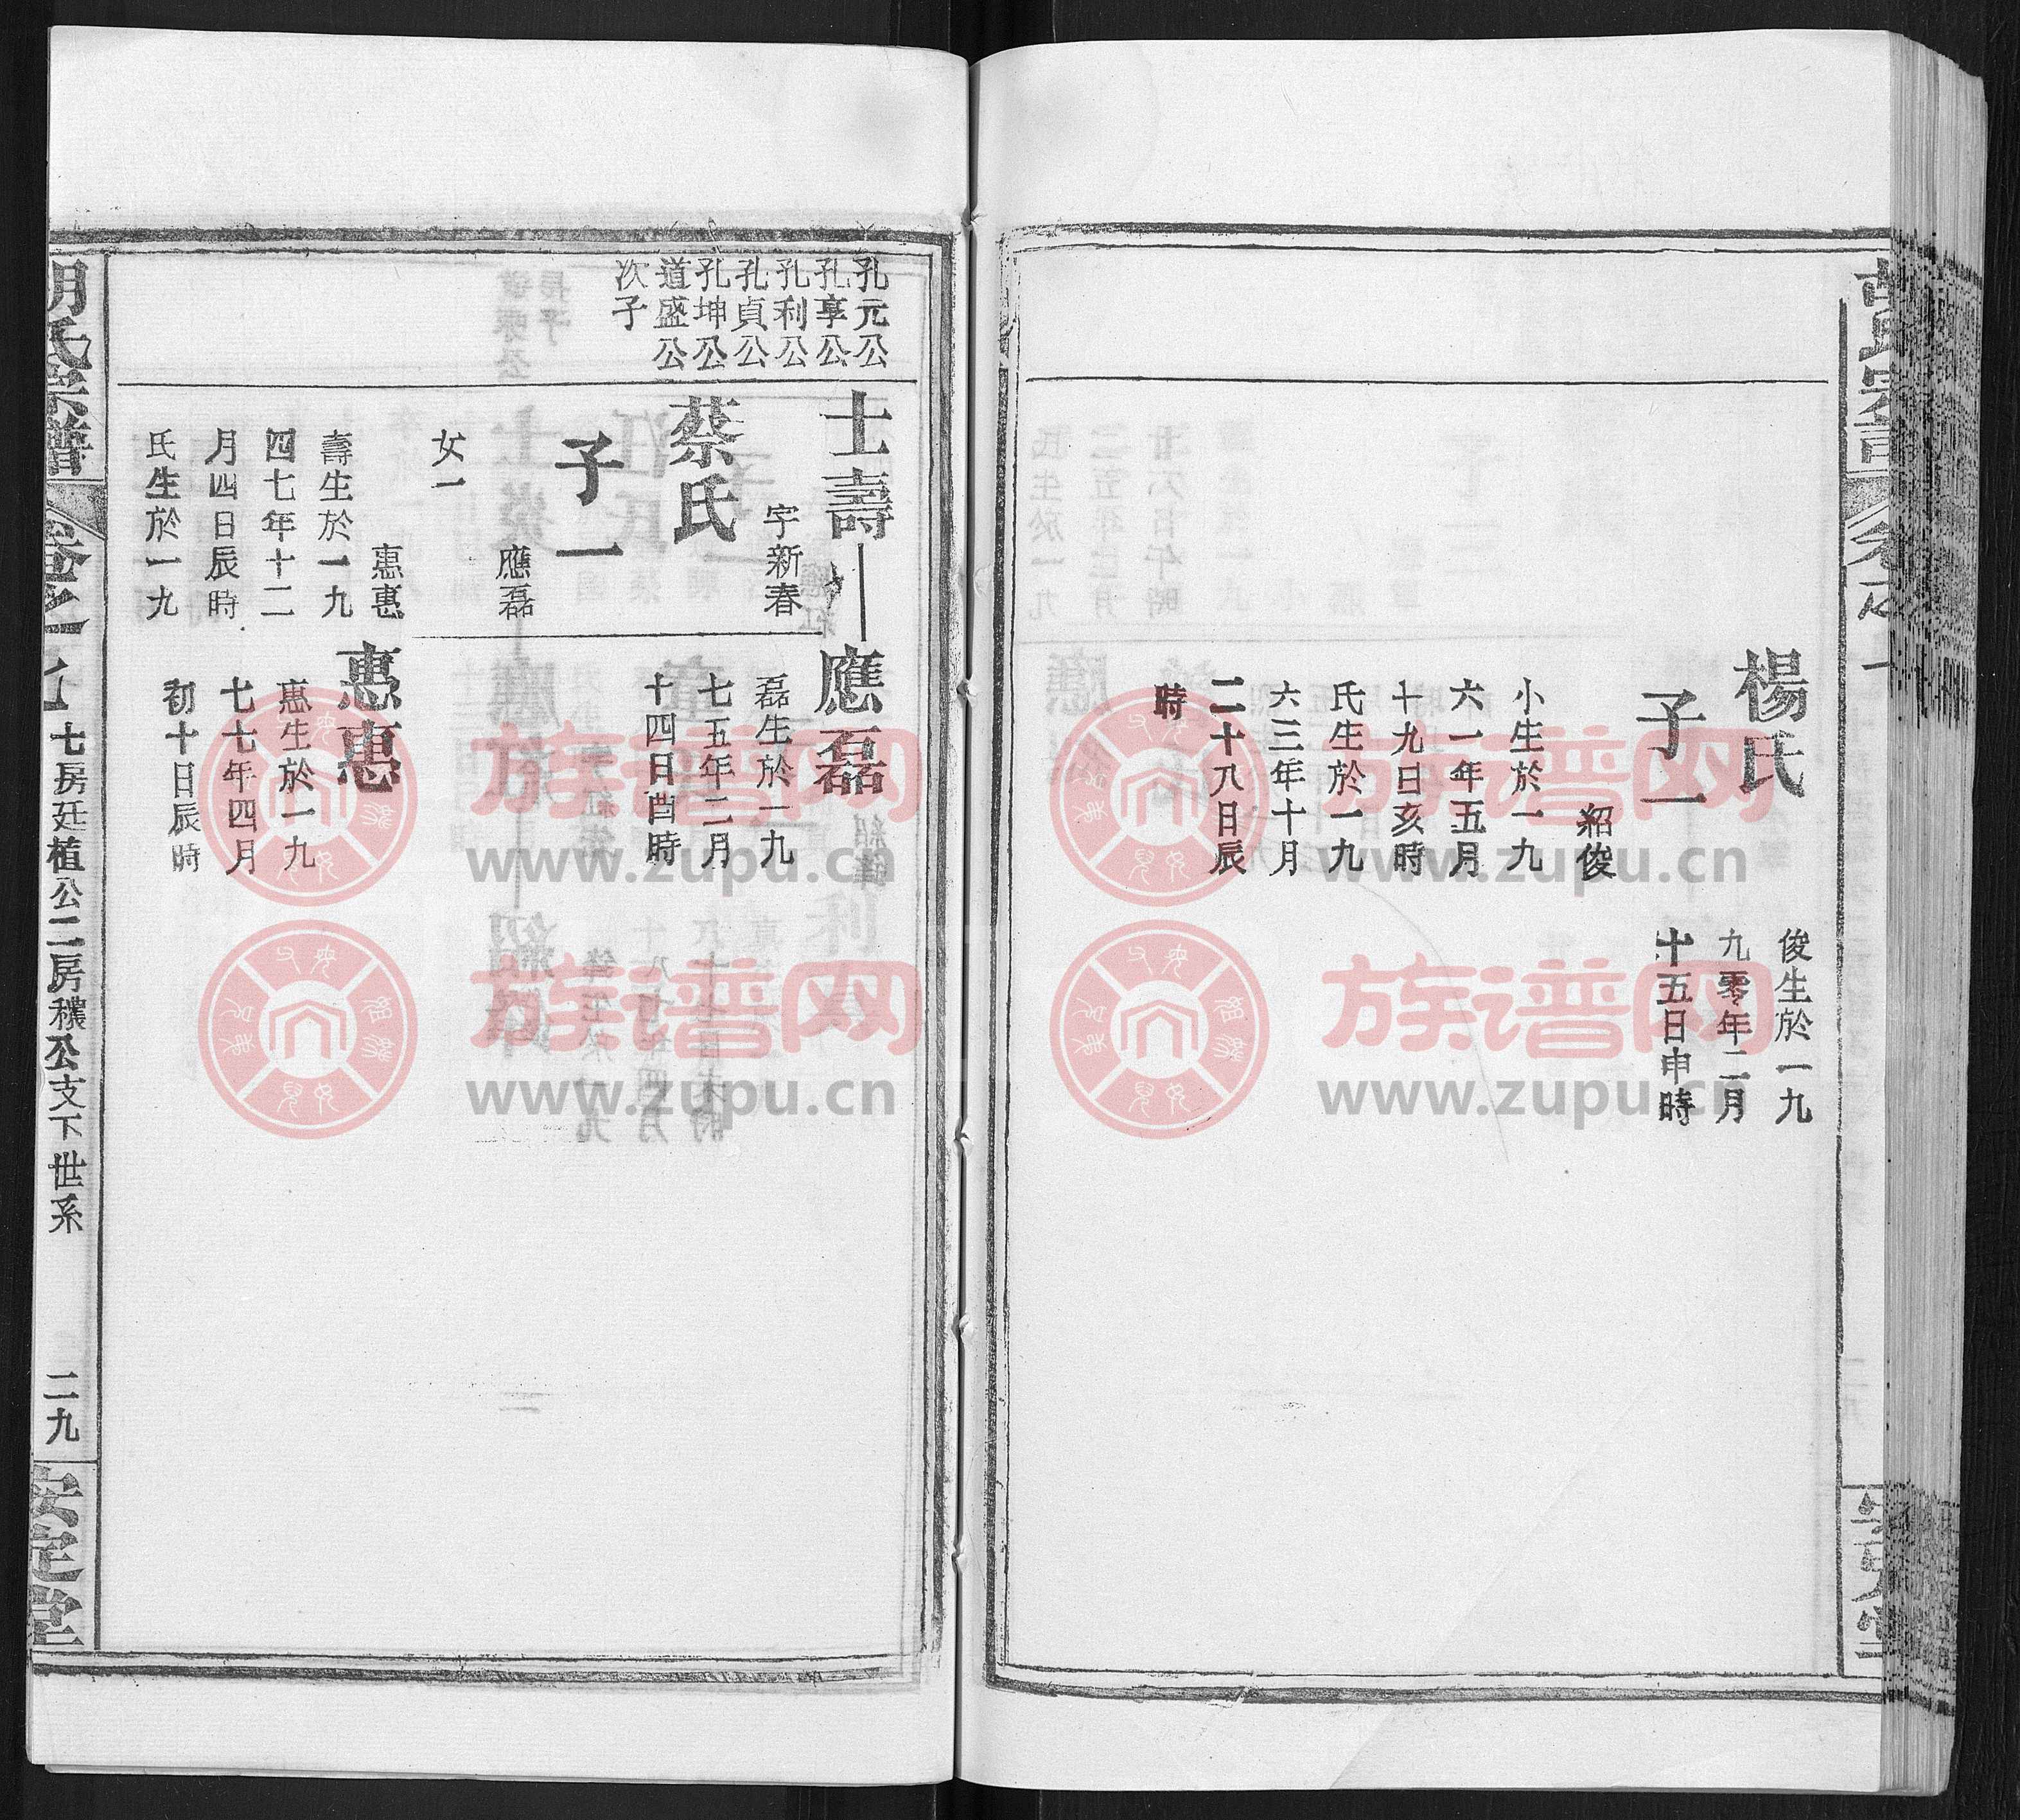 楊氏
子一
紹俊
小生於一九
六一年五月
十九日亥時
氏生於一九
六三年十月
二十八日辰
時
俊生於一九
九零年二月
十五日申時
孔元公
孔享公
孔利公
孔貞公
孔坤公
道盛公
次子
士壽
字新春
蔡氏
子一
應磊
女一
惠惠
壽生於一九
四七年十二
月四日辰時
氏生於一九
應磊
磊生於一九
七五年二月
十四日酉時
惠惠
惠生於一九
七七年四月
初十日辰時
胡氏宗譜
卷之七
七房廷植公二房穠公支下世系
二九
安定堂
族谱网
www.zupu.cn
族谱网
www.zupu.cn
族谱网
www.zupu.cn
族谱网
www.zupu.cn